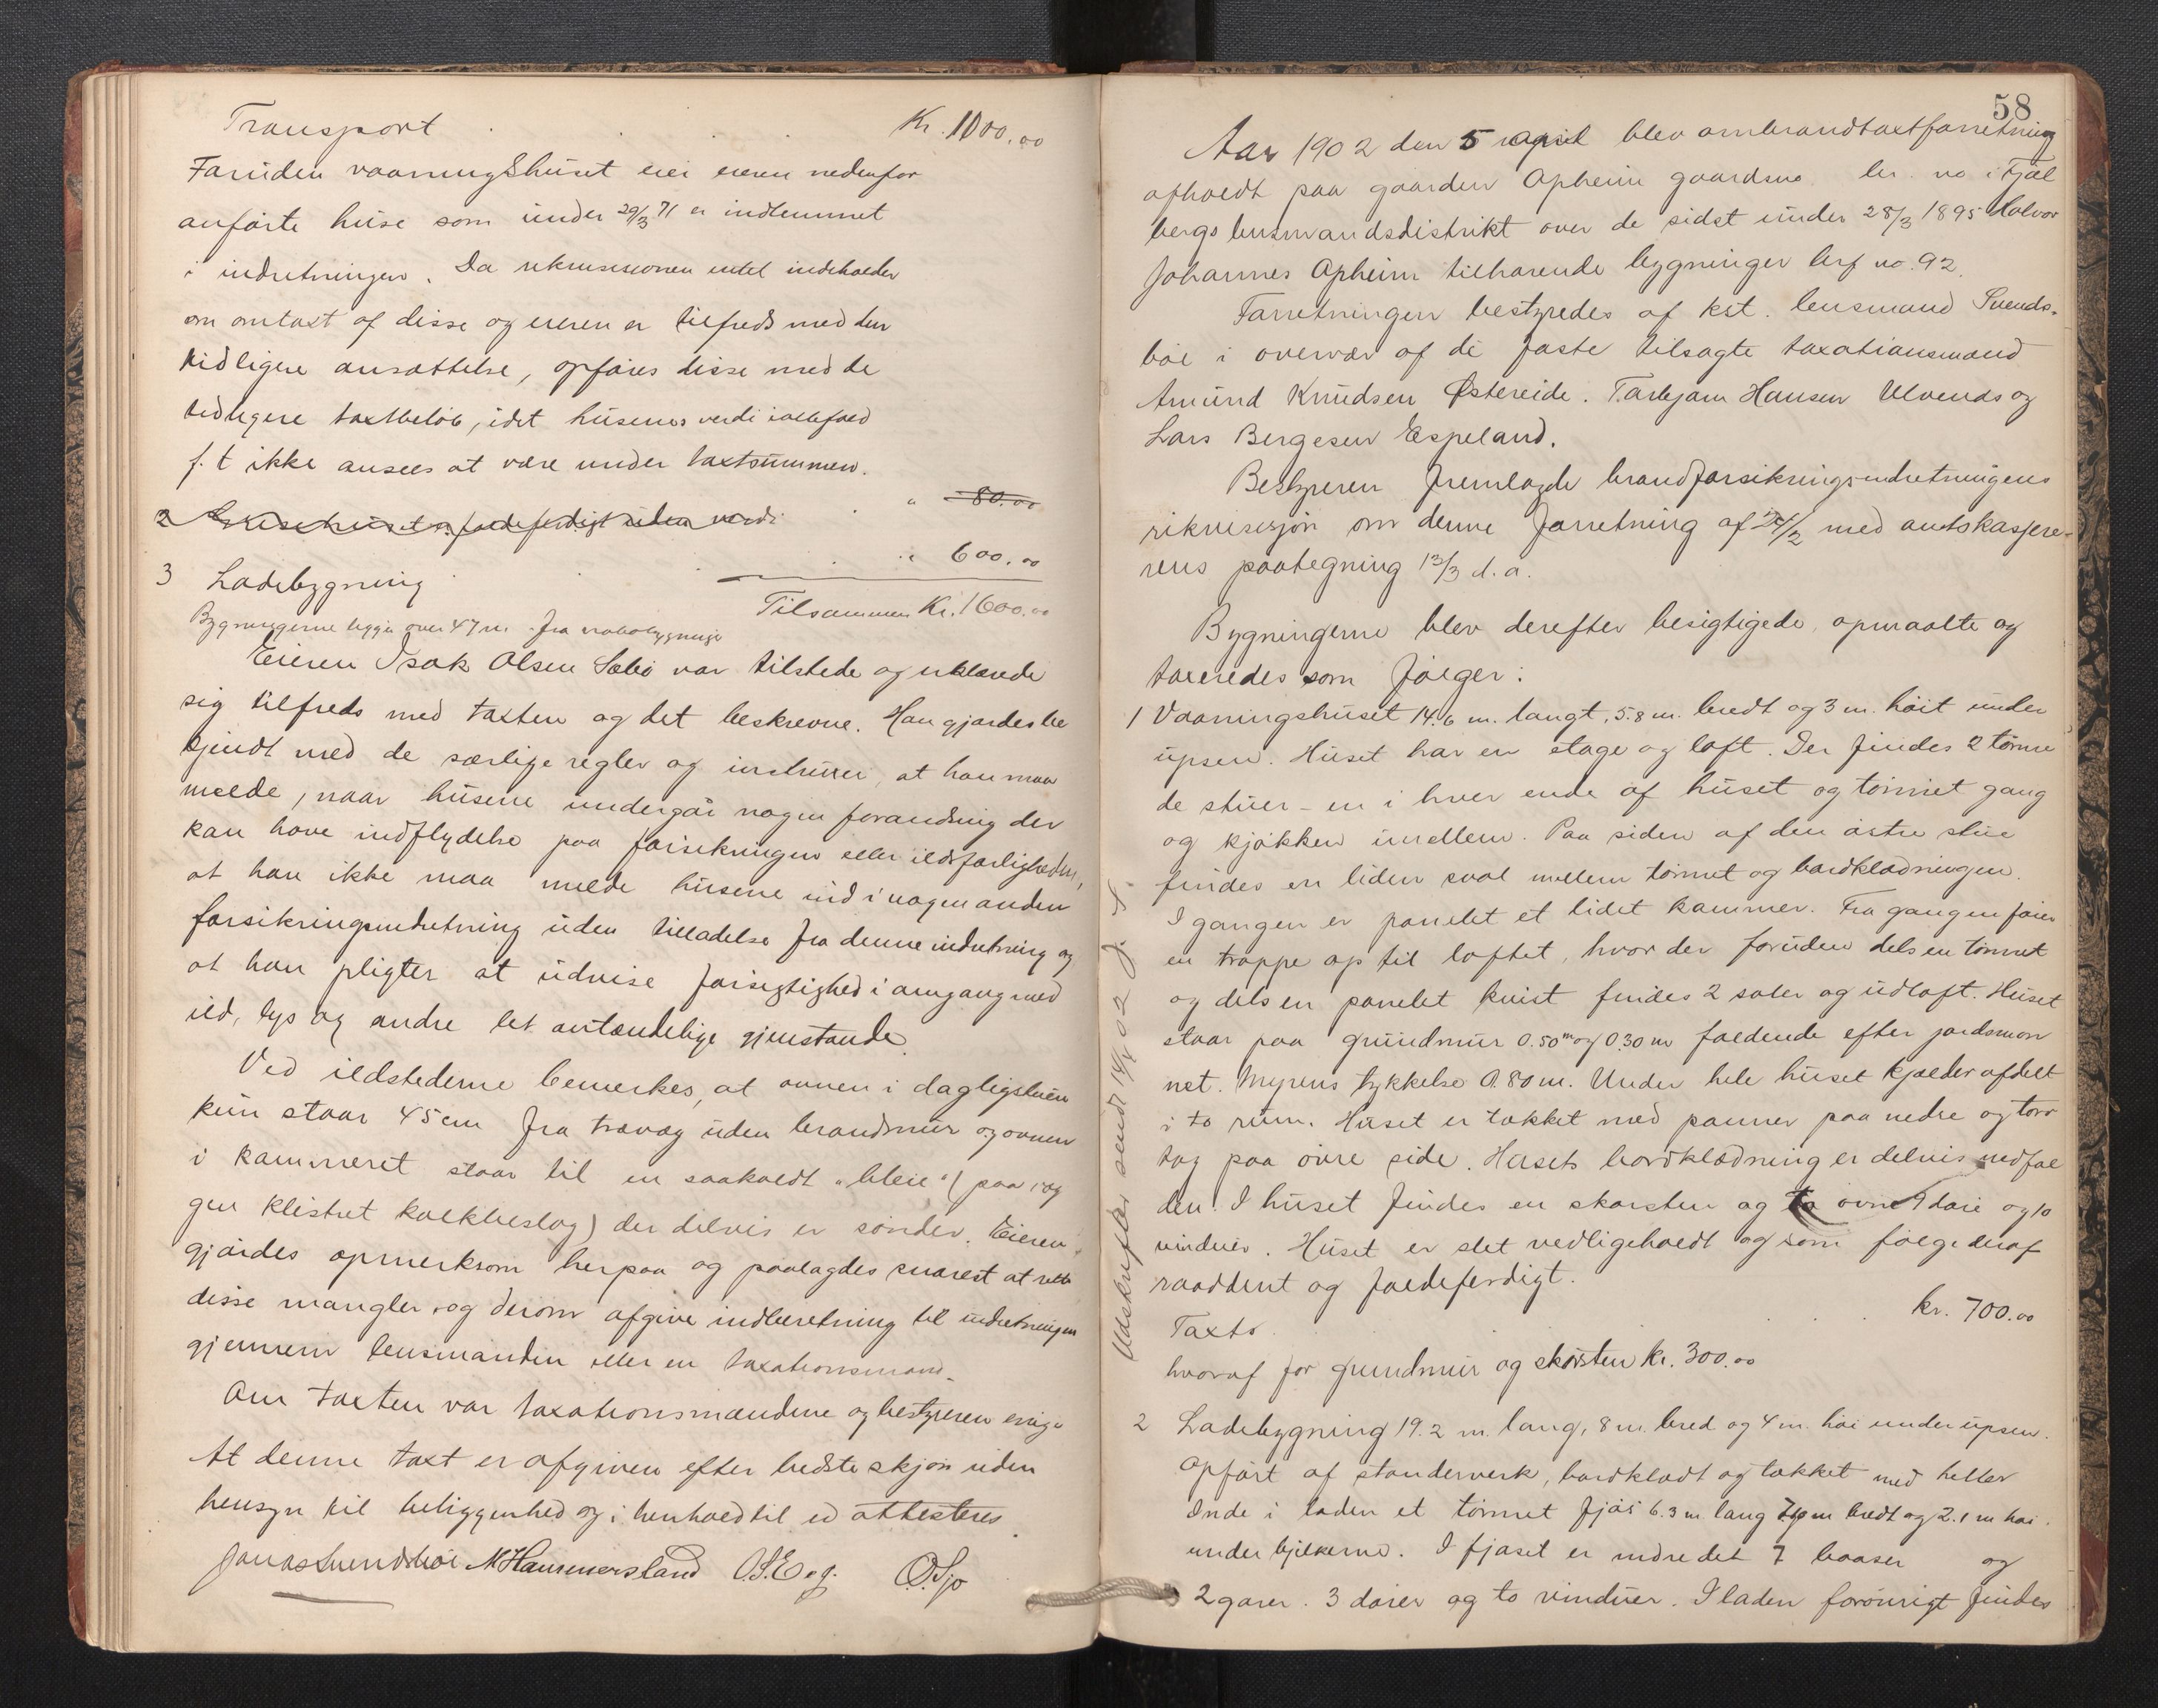 Transport Kr. 1000.00
Foruden vaaningshuset eier eieren nedenfor
anførte huse som under 29/3 71 er indlemmet
i indretningen. Da rekvisisionen intet indeholder
om omtaxt af disse og eieren er tilfreds med den
tidligere ansættelse, opføres disse med de
tidligere taxtbeløb, idet husenes verdi ialdfald
f. t ikke ansees at være under taxtsummen.
2 faldeferdigt uden verdi " 80.00
3 Ladebygning " 600.00
Tilsammen Kr. 1600.00
Bygningerne ligger over 47 m. fra nabobygninge
Eieren Isak Olsen Sæbø var tilstede og erklærede
sig tilfreds med taxten og det beskrevne. Han gjordes be
kjendt med de særlige regler og instruxer, at han maa
melde, naar husene undergår nogen forandring der
kan have indflydelse paa forsikringen eller ildsfarligheden,
at han ikke maa melde husene ind i nogen anden
forsikringsindretning uden tilladelse fra denne indretning og
at han pligter at udvise forsigtighed i omgang med
ild, lys og andre let antændelige gjenstande.
Ved ildstederne bemerkes, at ovnen i dagligstuen
kun staar 45 cm fra trævæg uden brandmur og ovnen
i kammeret staar til en saakaldt "bleie" (paa væg
gen klistret kalkbeslag) der delvis er sønder. Eieren
gjordes opmerksom herpaa og paalagdes snarest at rette
disse mangler og derom afgive indberetning til indretningen
gjennem lensmanden eller en taxationsmand.
Om taxten var taxationsmændene og bestyreren enige
At denne taxt er afgiven efter bedste skjøn uden
hensyn til beliggenhed og i henhold til ed attesteres.
Jonas Svendsbøe M Hammersland O. S. Eeg. O. Sjo
58
Aar 1902 den 5 april blev ombrandtaxtforretning
afholdt paa gaarden Opheim gaardsno. br. no i Fjæl
bergs lensmandsdistrikt over de sidst under 28/3 1895 Halvor
Johannes Opheim tilhørende bygninger brf no. 92.
Forretningen bestyredes af kst. lensmand Svends-
bøe i overvær af de faste tilsagte taxationsmænd
Amund Knudsen Østereide. Torbjørn Hansen Ulvends og
Lars Bergesen Espeland.
Bestyreren fremlagde brandforsikringsindretningens
rikvisisjon om denne forretning af 24/2 med amtskassere-
rens paategning 13/3 d. a.
Bygningerne blev derefter besigtigede, opmaalte og
taxeredes som følger:
1 Vaaningshuset 14.6 m. langt, 5.8 m. bredt og 3 m. høit under
upsen. Huset har en etage og loft. Der findes 2 tømre
de stuer - en i hver ende af huset og tømret gang
og kjøkken imellem. Paa siden af den østre stue
findes en liden sval mellem tømret og bordklædningen.
I gangen er panelet et lidet kammer. Fra gangen fører
en trappe op til loftet, hvor der foruden dels en tømret
og dels en panelet kvist findes 2 saler og udloft. Huset
staar paa grundmur 0.50 m og 0.30 m faldende efter jordsmon
net. Myrens tykkelse 0.80 m. Under hele huset kjælder afdelt
i to rum. Huset er tækket med panner paa nedre og torv
tag paa øvre side. Husets bordklædning er delvis nedfal
den. I huset findes en skorsten og to ovne 9 døre og 10
vinduer. Huset er slet vedligeholdt og som følge deraf
raaddent og faldeferdigt.
Taxts kr. 700.00
hvoraf for grundmur og skorsten kr. 300.00
2 Ladebygning 19.2 m. lang, 8 m. bred og 4 m. høi under upsen.
Opført af standerverk, bordklædt og tækket med heller
Inde i laden et tømret fjøs 6.3 m lang m bredt og 2.1 m høi
under bjelkerne. I fjøset er indredet 7 baaser og
2 garer. 3 døre og to vinduer. I laden forøvrigt findes
Udskrifter sendt 14/4 02 J. S.